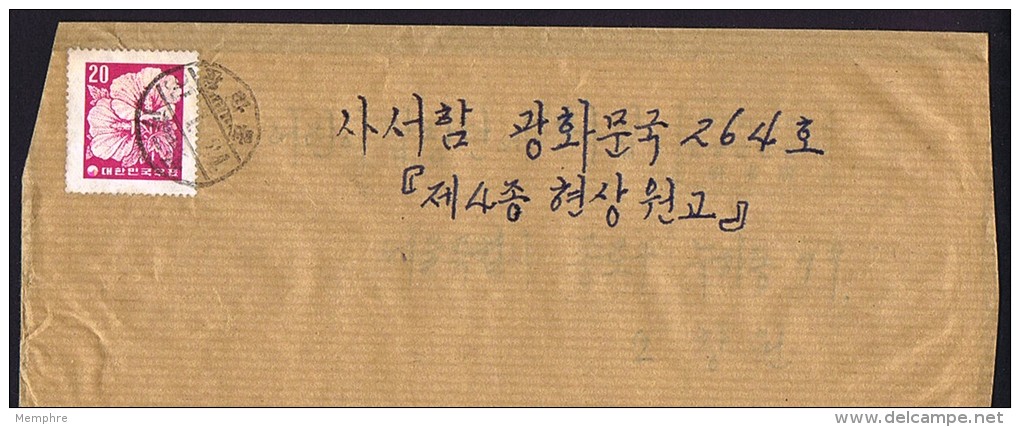 20
대한민국우표
사서함 광화문국 264호
『제4종 현상 원고』
Memphre
delcampe.net